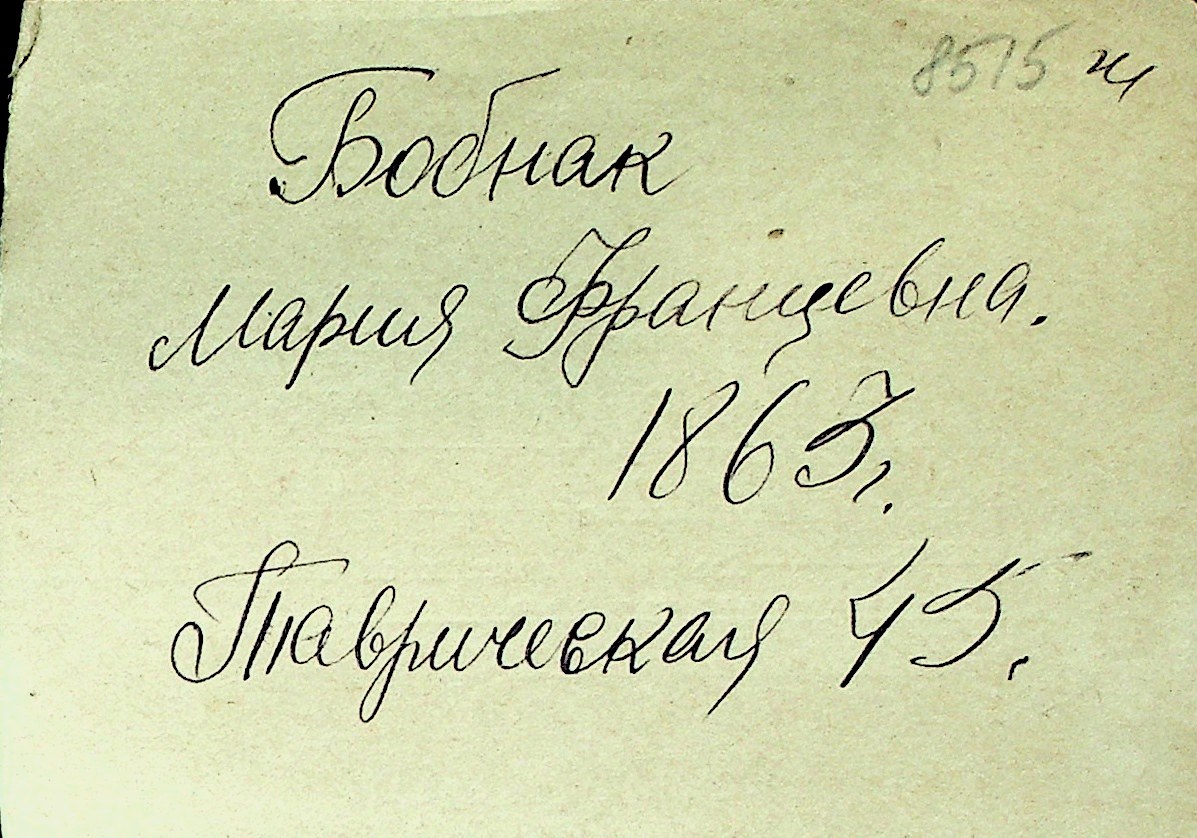 8515 ж
Бобнак
Мария Францевна.
1863г.
Таврическая 45.